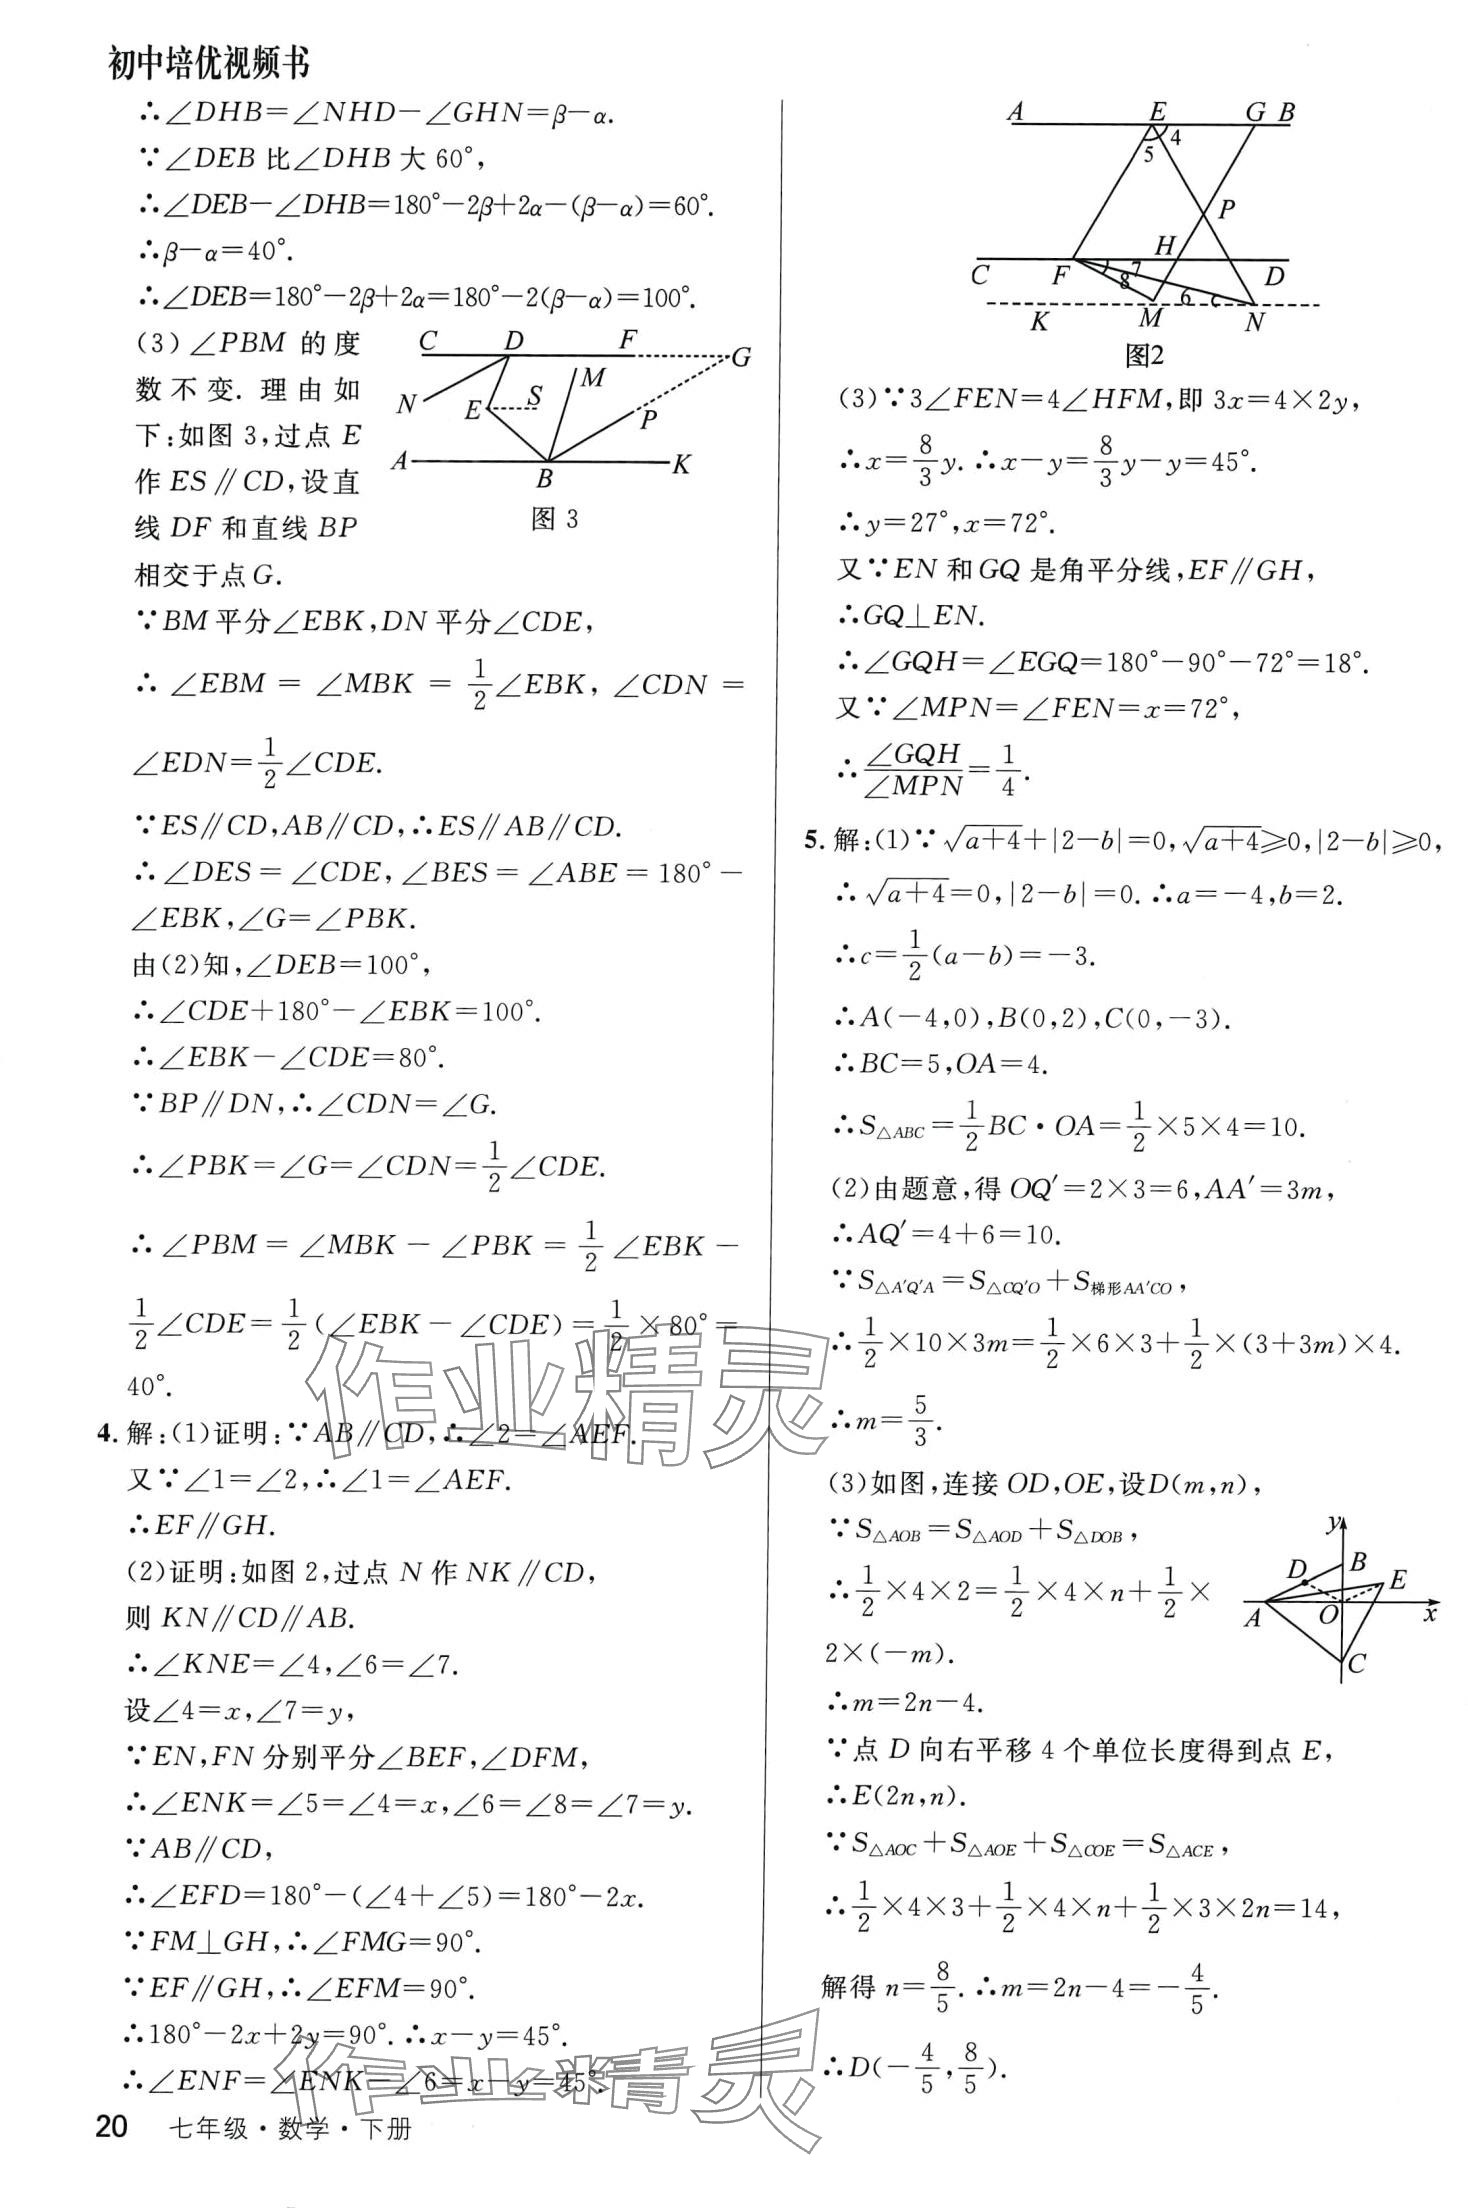 初中培优视频书
∴∠DHB=∠NHD-∠GHN=β-α.
∵∠DEB比∠DHB大60°,
∴∠DEB-∠DHB=180°-2β+2α-(β-α)=60°.
∴β-α=40°.
∴∠DEB=180°-2β+2α=180°-2(β-α)=100°.
(3)∠PBM 的度
数不变. 理由如
下:如图3,过点E
作ES∥CD,设直
线DF和直线BP
相交于点G.
C D F G
M
N E S P
A B K
图3
∵BM平分∠EBK,DN平分∠CDE,
∴∠EBM=∠MBK=1/2∠EBK,∠CDN=
∠EDN=1/2∠CDE.
∵ES∥CD,AB∥CD,∴ES∥AB∥CD.
∴∠DES=∠CDE,∠BES=∠ABE=180°-
∠EBK,∠G=∠PBK.
由(2)知,∠DEB=100°,
∴∠CDE+180°-∠EBK=100°.
∴∠EBK-∠CDE=80°.
∵BP∥DN,∴∠CDN=∠G.
∴∠PBK=∠G=∠CDN=1/2∠CDE.
∴∠PBM=∠MBK-∠PBK=1/2∠EBK-
1/2∠CDE=1/2(∠EBK-∠CDE)=1/2×80°=
40°.
4. 解:(1)证明:∵AB∥CD,∴∠2=∠AEF.
又∵∠1=∠2,∴∠1=∠AEF.
∴EF∥GH.
(2)证明:如图2,过点N作NK∥CD,
则KN∥CD∥AB.
∴∠KNE=∠4,∠6=∠7.
设∠4=x,∠7=y,
∵EN,FN分别平分∠BEF,∠DFM,
∴∠ENK=∠5=∠4=x,∠6=∠8=∠7=y.
∵AB∥CD,
∴∠EFD=180°-(∠4+∠5)=180°-2x.
∵FM⊥GH,∴∠FMG=90°.
∵EF∥GH,∴∠EFM=90°.
∴180°-2x+2y=90°.∴x-y=45°.
∴∠ENF=∠ENK-∠6=x-y=45°.
A E G B
5 4
P
H
C F 7 D
8 6
K M N
图2
(3)∵3∠FEN=4∠HFM,即3x=4×2y,
∴x=8/3y.∴x-y=8/3y-y=45°.
∴y=27°,x=72°.
又∵EN和GQ是角平分线,EF∥GH,
∴GQ⊥EN.
∴∠GQH=∠EGQ=180°-90°-72°=18°.
又∵∠MPN=∠FEN=x=72°,
∴∠GQH/∠MPN=1/4.
5. 解:(1)∵√(a+4)+|2-b|=0,√(a+4)≥0,|2-b|≥0,
∴√(a+4)=0,|2-b|=0.∴a=-4,b=2.
∴c=1/2(a-b)=-3.
∴A(-4,0),B(0,2),C(0,-3).
∴BC=5,OA=4.
∴S△ABC=1/2BC·OA=1/2×5×4=10.
(2)由题意,得OQ′=2×3=6,AA′=3m,
∴AQ′=4+6=10.
∵S△A′Q′A=S△CQ′O+S梯形AA′CO,
∴1/2×10×3m=1/2×6×3+1/2×(3+3m)×4.
∴m=5/3.
(3)如图,连接OD,OE,设D(m,n),
∵S△AOB=S△AOD+S△DOB,
∴1/2×4×2=1/2×4×n+1/2×
2×(-m).
∴m=2n-4.
y
D B E
A O x
C
∵点D向右平移4个单位长度得到点E,
∴E(2n,n).
∵S△AOC+S△AOE+S△COE=S△ACE,
∴1/2×4×3+1/2×4×n+1/2×3×2n=14,
解得n=8/5.∴m=2n-4=-4/5.
∴D(-4/5,8/5).
作业精灵
作业精灵
20 七年级·数学·下册